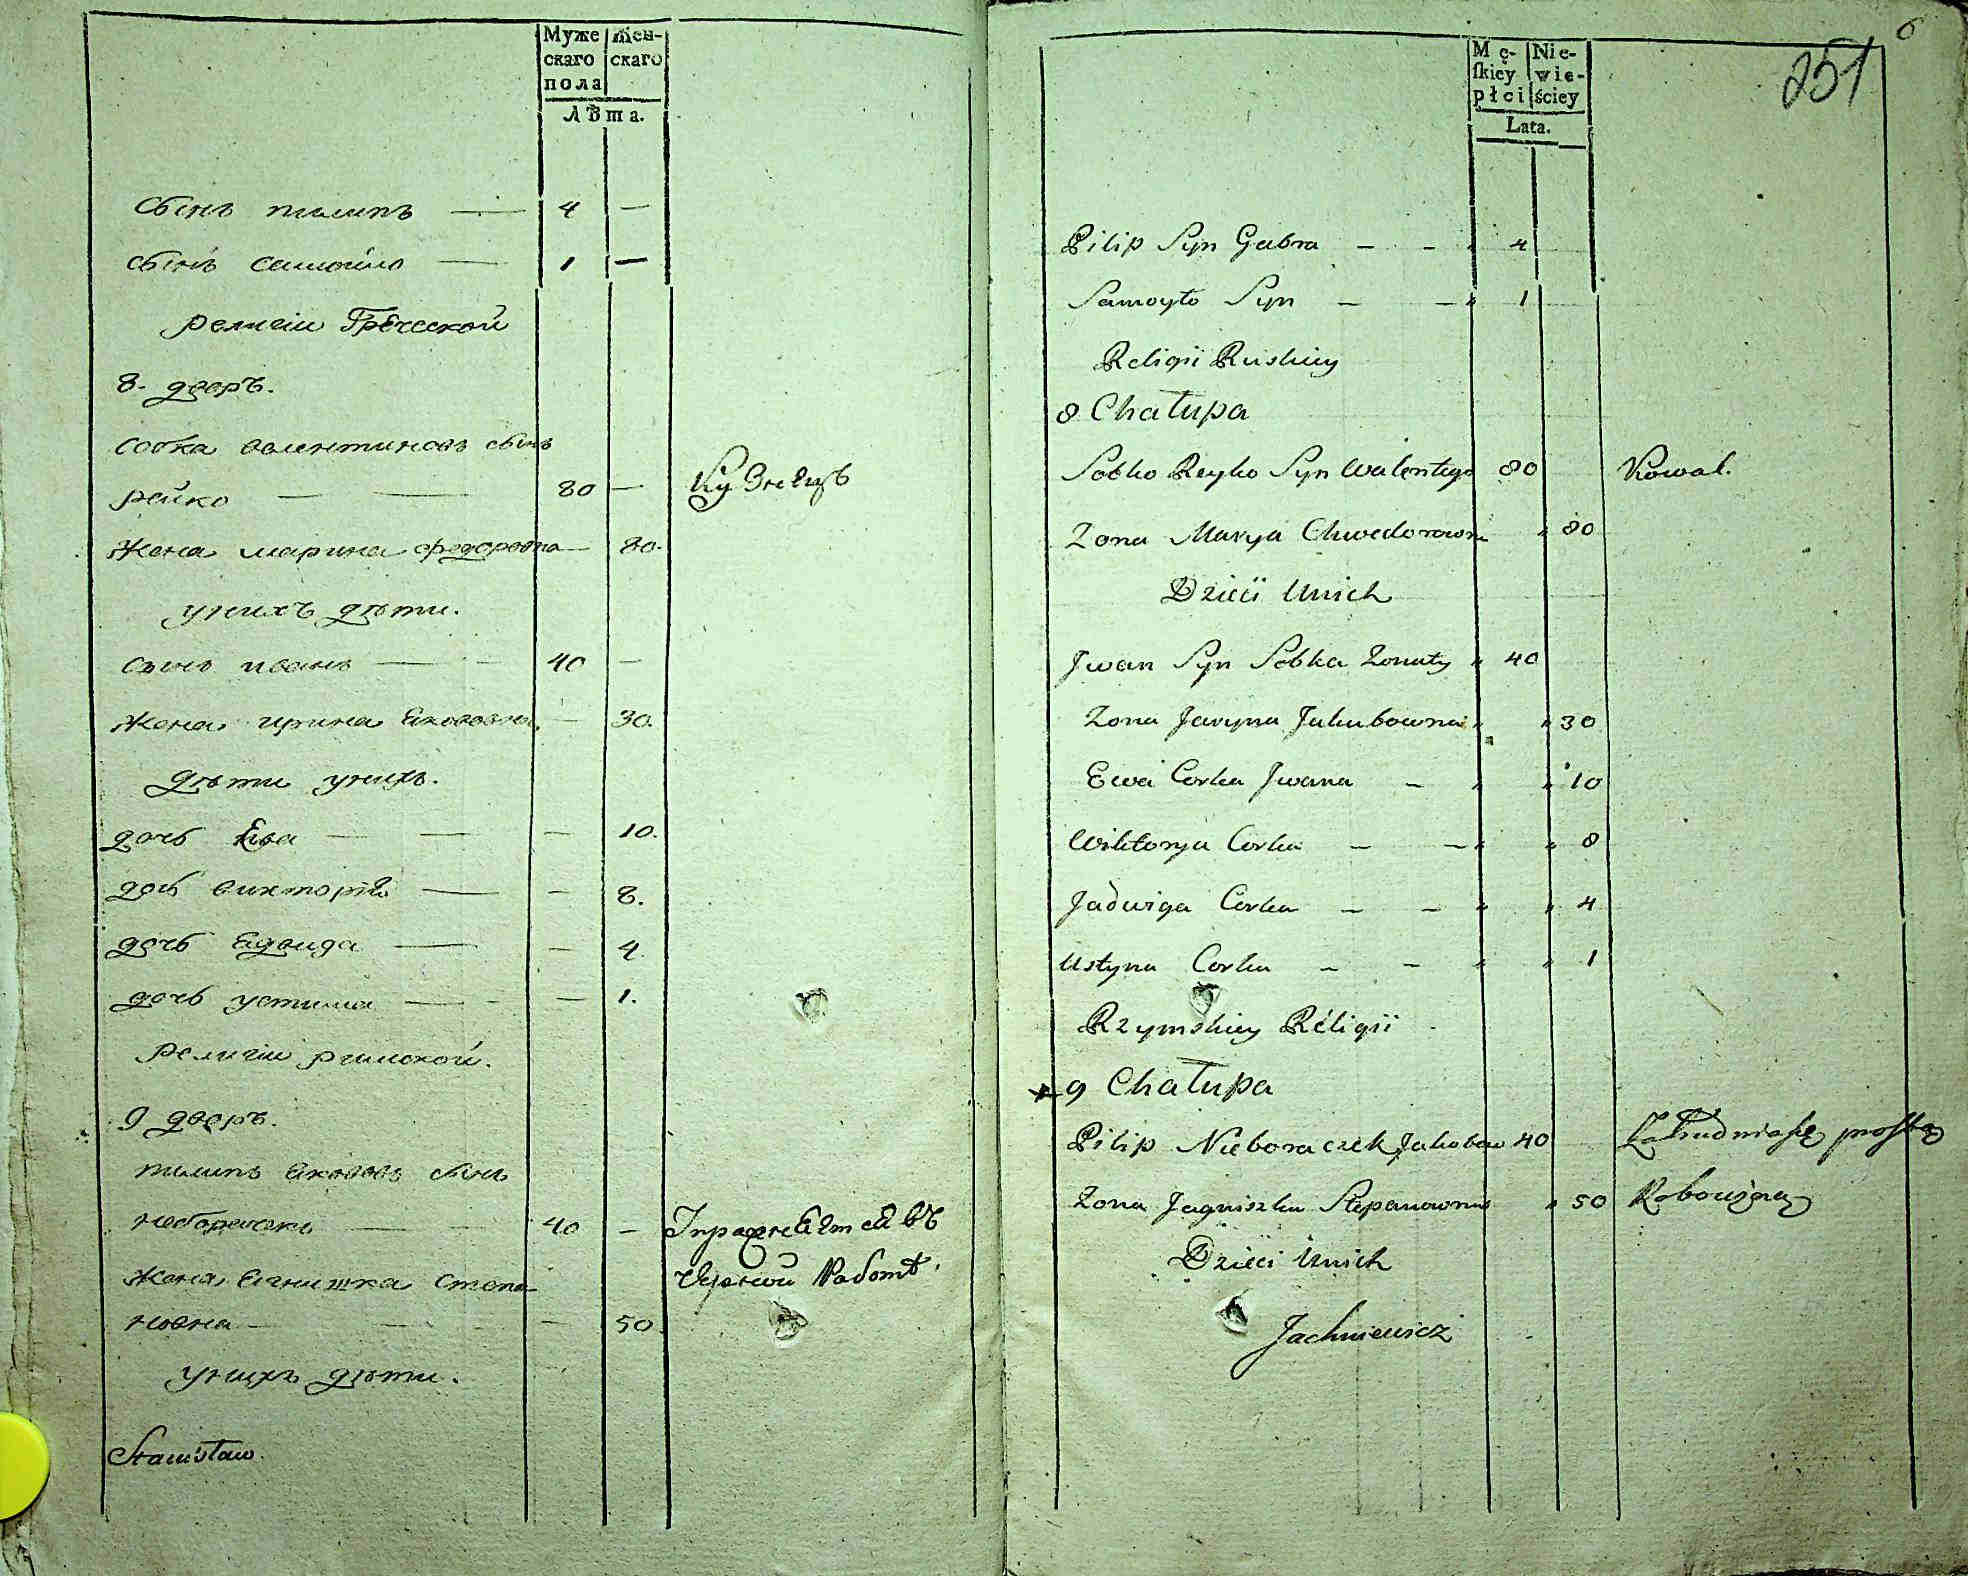 Муже Жен-
скаго скаго
пола
Лѣта.
Сынъ пилипъ — 4 —
Сынъ самойло — 1 —
религіи Греческой
8. дворъ.
Собка валентиновъ сынъ
рейко — — 80 — Кузнецъ
Жена марина федоровна — 80.
унихъ дѣти.
Сынъ иванъ — 40 —
Жена ирина Якововна — 30.
дѣти унихъ.
дочь Ева — — — 10.
дочь викторія — — 8.
дочь Ядвига — — 4
дочь устина — — 1.
религіи римской.
9 дворъ.
пилипъ Якововъ сынъ
неборачекъ — 40 — Упражняется въ
Жена Ягнишка степа- черной Работѣ
новна — — 50.
унихъ дѣти.
Stanisław
6
251
Mę- Nie-
ſkiey wie-
płci ściey
Lata.
Pilip Syn Gabra — — " 4
Samoyło Syn — — " 1
Religii Ruskiey
8 Chałupa
Sobko Reyko Syn Walentego 80 Kowal.
Zona Marya Chwedorowna " 80
Dzieci Unich
Jwan Syn Sobka Zonaty " 40
Zona Jaryna Jakubowna " " 30
Ewa Corka Jwana — " " 10
Wiktorya Corka — — " " 8
Jadwiga Corka — — " " 4
Ustyna Corka — — " " 1
Rzymskiey Religii
9 Chałupa
Pilip Nieboraczek Jakobow 40 Zatrudnia się prostą
Zona Jagniszka Stepanowna " 50 Robocizną
Dzieci Unich
Jachniewicz